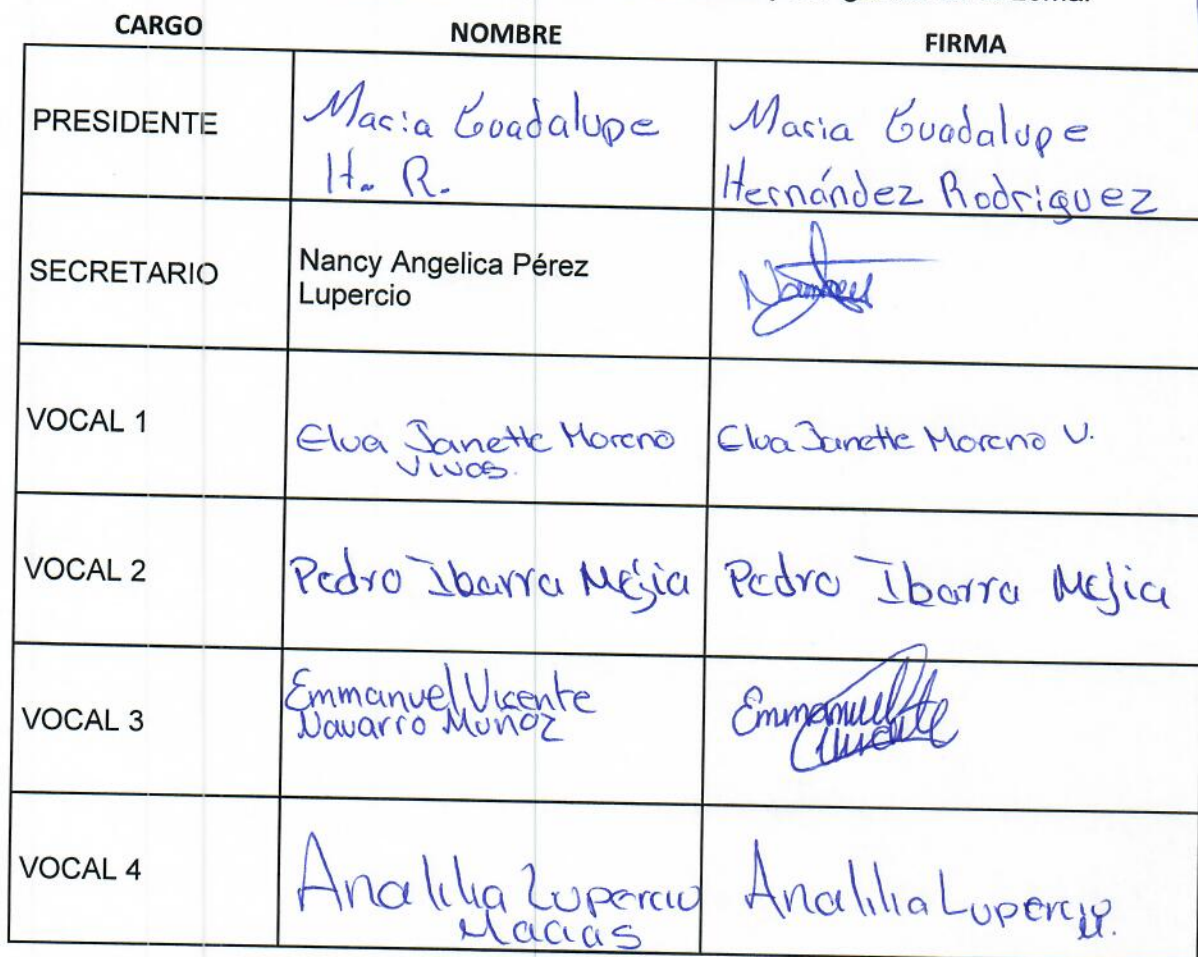 CARGO NOMBRE FIRMA
PRESIDENTE
Maria Guadalupe
H. R.
Maria Guadalupe
Hernández Rodriguez
SECRETARIO
Nancy Angelica Pérez
Lupercio
VOCAL 1
Elva Janette Moreno
Vivas.
Elva Janette Moreno V.
VOCAL 2
Pedro Ibarra Mejia
Pedro Ibarra Mejia
VOCAL 3
Emmanuel Vicente
Navarro Muñoz
Emmanuel
Vicente
VOCAL 4
Analilia Lupercio
Macias
Analilia Lupercio
M.